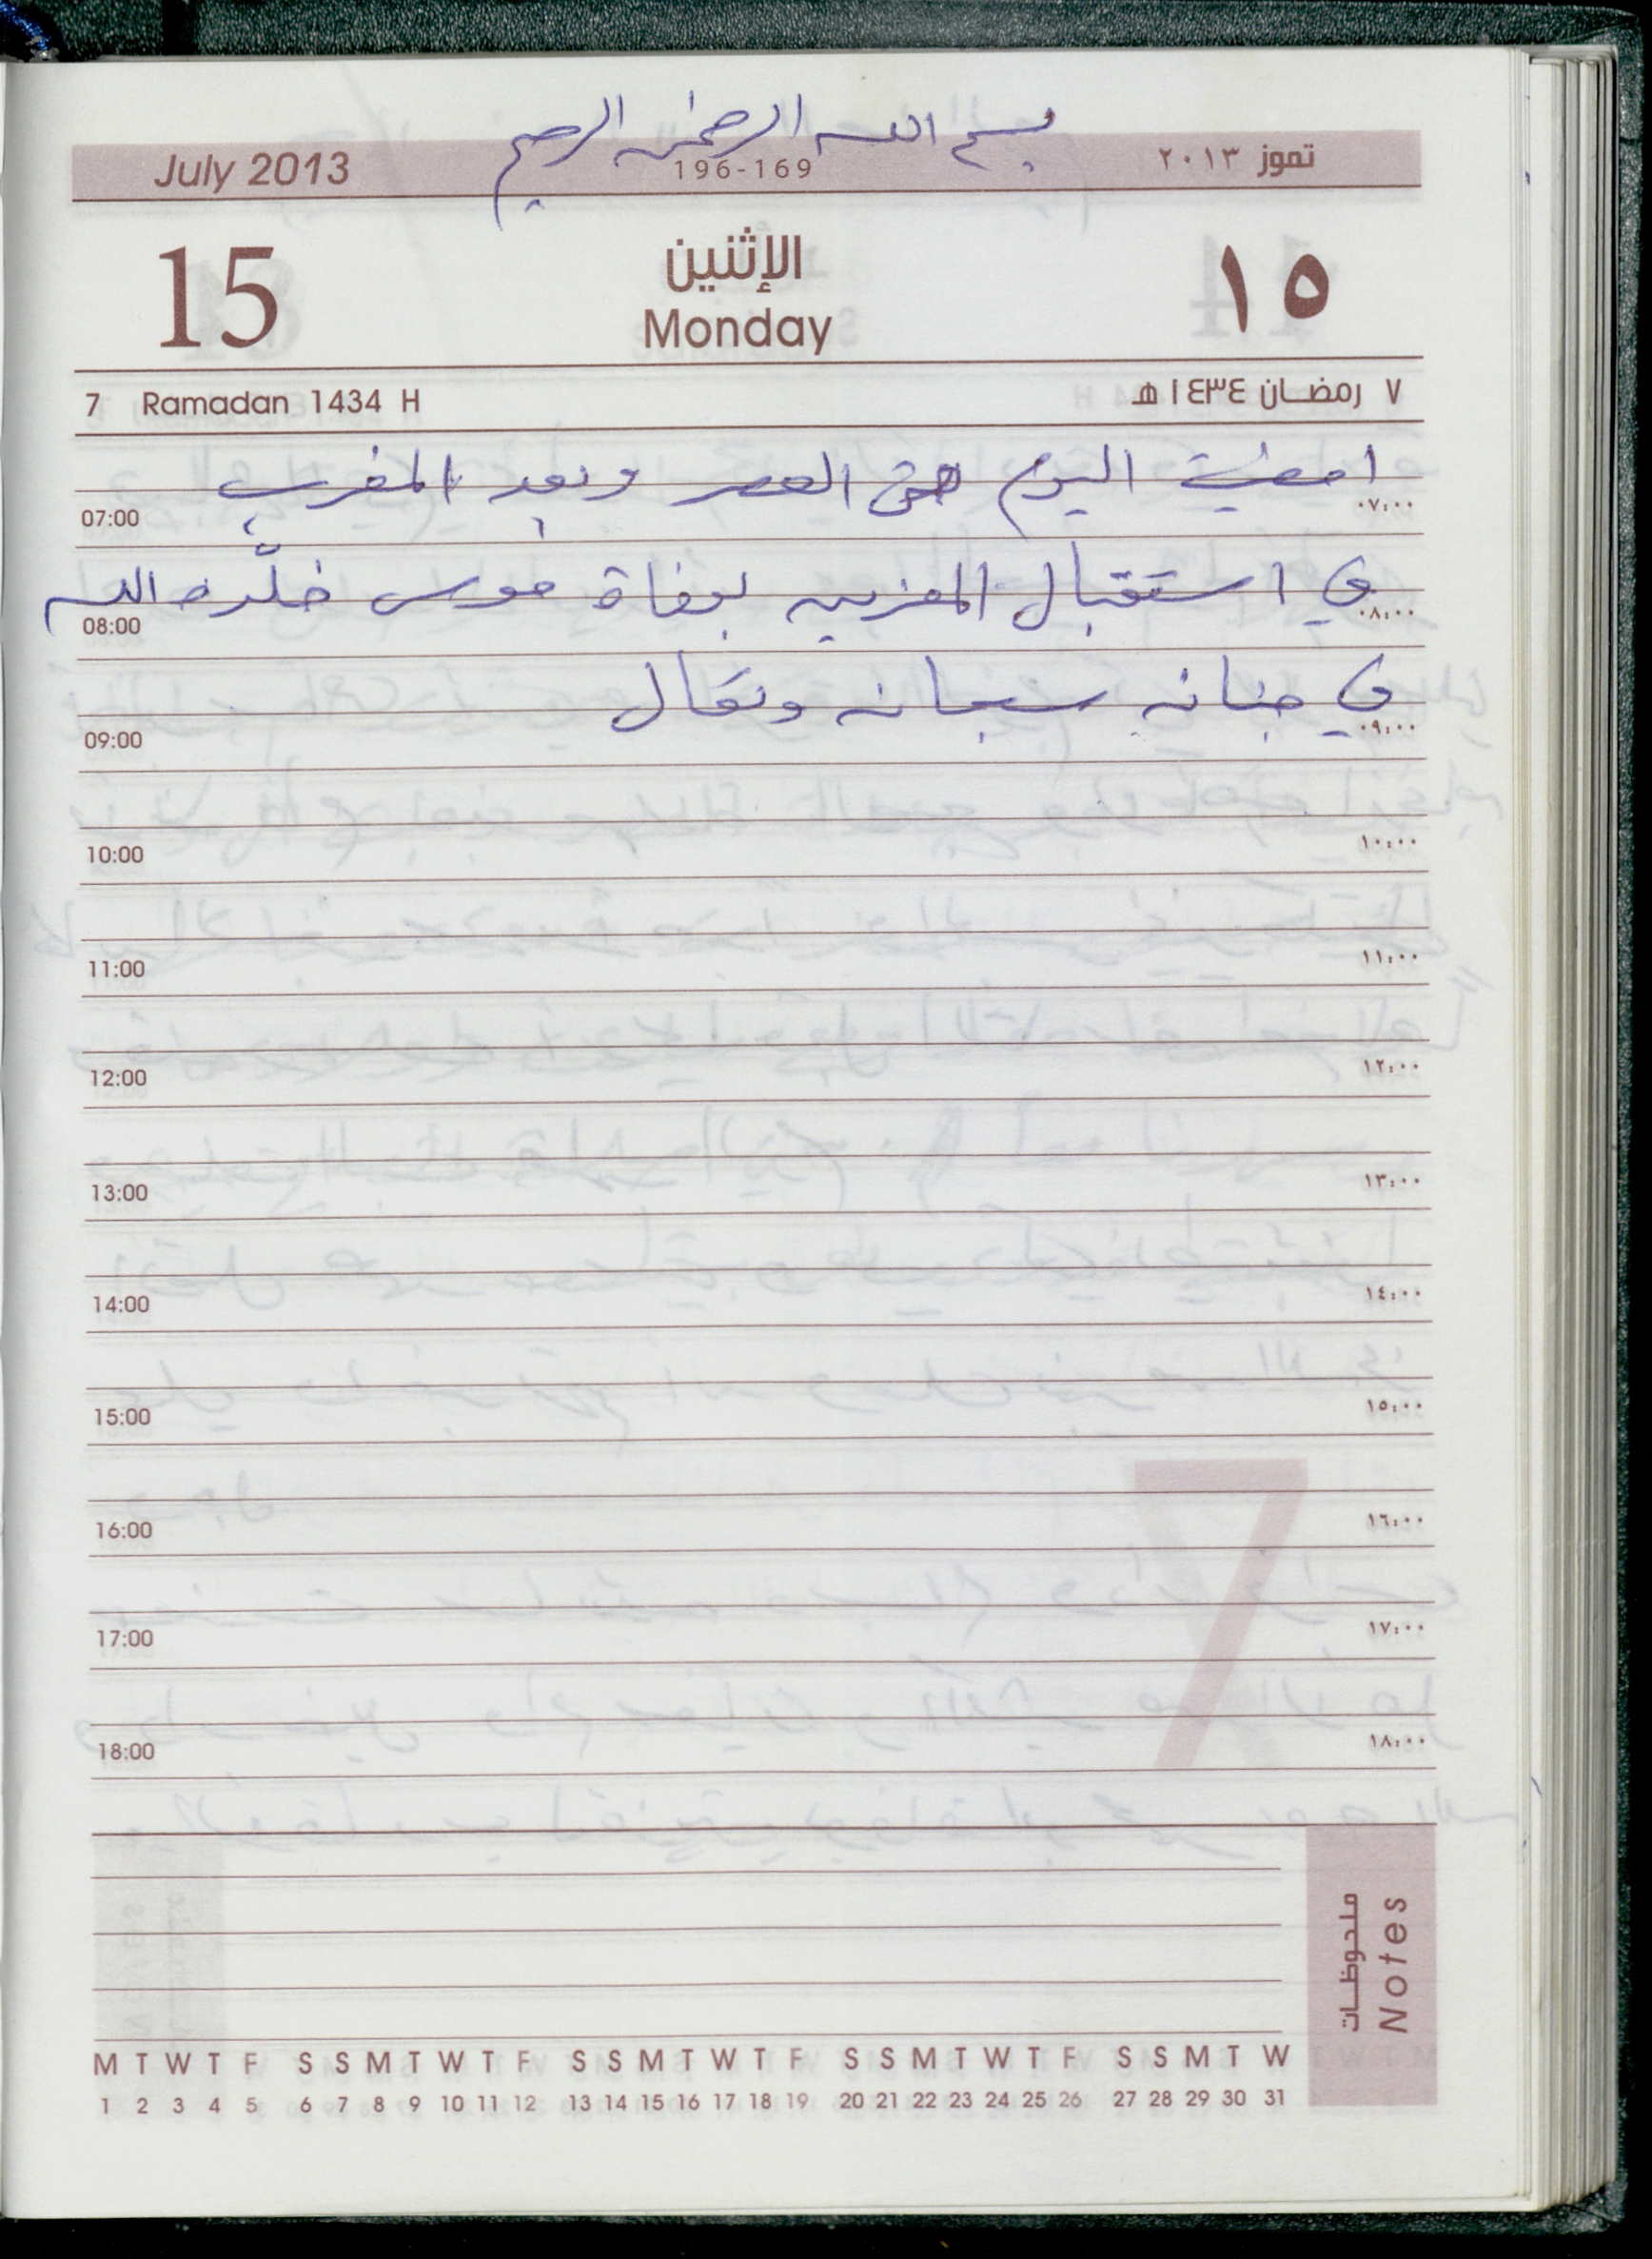 بسم الله الرحمن الرحيم
July 2013 196-169 تموز ٢٠١٣
15 الإثنين ١٥
Monday
7 Ramadan 1434 H ٧ رمضان ١٤٣٤ هـ
امضيت اليوم حتى العصر وبعد المغرب
07:00 ٠٧:٠٠
في استقبال المعزين بوفاة موسى خلّده الله
08:00 ٠٨:٠٠
في جنانه سبحانه وتعالى
09:00 ٠٩:٠٠
10:00 ١٠:٠٠
11:00 ١١:٠٠
12:00 ١٢:٠٠
13:00 ١٣:٠٠
14:00 ١٤:٠٠
15:00 ١٥:٠٠
7
16:00 ١٦:٠٠
17:00 ١٧:٠٠
18:00 ١٨:٠٠
ملحوظات
Notes
M T W T F S S M T W T F S S M T W T F S S M T W T F S S M T W
1 2 3 4 5 6 7 8 9 10 11 12 13 14 15 16 17 18 19 20 21 22 23 24 25 26 27 28 29 30 31